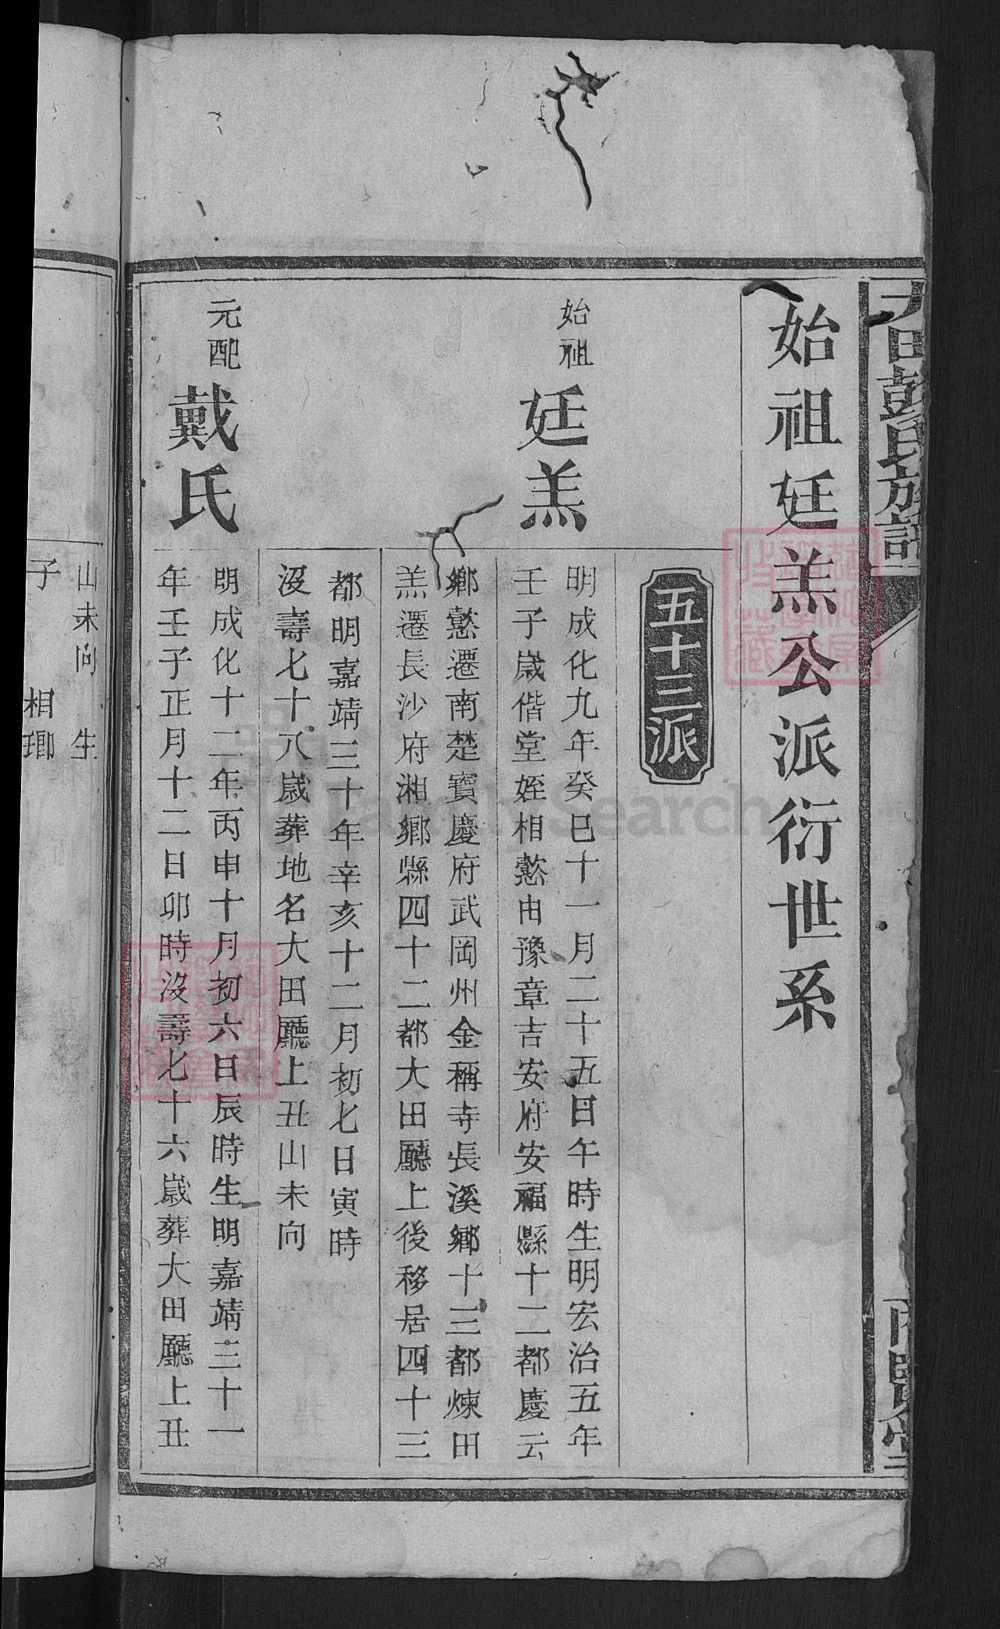 大田彭氏族譜
始祖廷羔公派衍世系
五十三派
始祖
廷羔
明成化九年癸巳十一月二十五日午時生明宏治五年
壬子歲偕堂姪相憗由豫章吉安府安福縣十二都慶云
鄉憗遷南楚寶慶府武岡州金稱寺長溪鄉十三都煉田
羔遷長沙府湘鄉縣四十二都大田廳上後移居四十三
都明嘉靖三十年辛亥十二月初七日寅時
沒壽七十八歲葬地名大田廳上丑山未向
元配
戴氏
明成化十二年丙申十月初六日辰時生明嘉靖三十一
年壬子正月十二日卯時沒壽七十六歲葬大田廳上丑
山未向 生
子 相瑯
FamilySearch